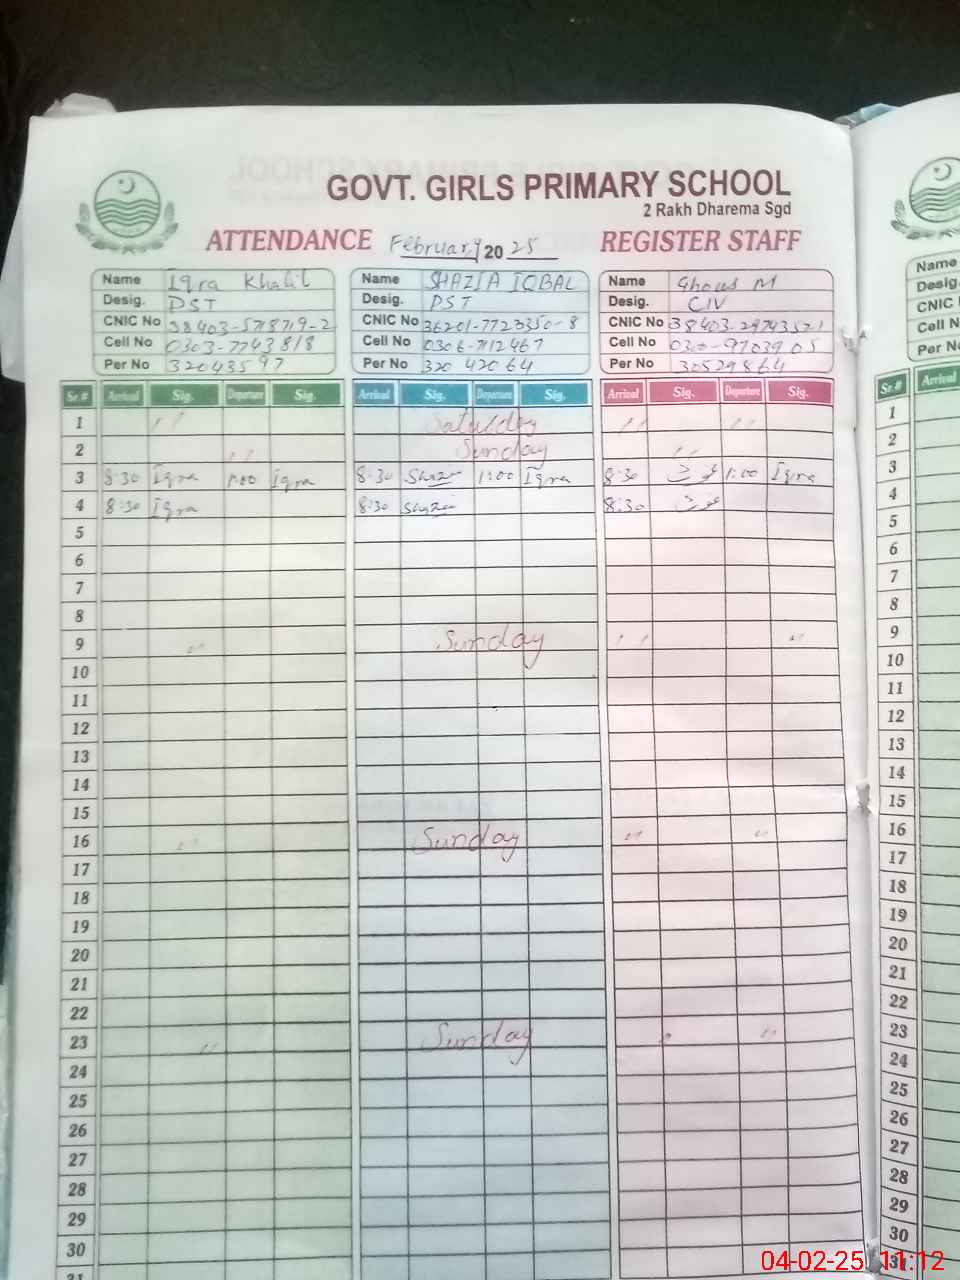 GOVT. GIRLS PRIMARY SCHOOL
2 Rakh Dharema Sgd
ATTENDANCE February 2025 REGISTER STAFF
Name Iqra Khalil Name SHAZIA IQBAL Name Ghous M Name
Desig. PST Desig. PST Desig. CIV Desig.
CNIC No 38403-5718719-2 CNIC No 36201-7720350-8 CNIC No CNIC
Cell No 0303-7743818 Cell No 0306-7112467 Cell No 0300-9703905 Cell N
Per No 32043597 Per No 32042064 Per No 30529864 Per No
Sr.# Arrival Sig. Departure Sig. Arrival Sig. Departure Sig. Arrival Sig. Departure Sig. Sr.# Arrival
1 " Saturday " " 1
2 " Sunday " 2
3 8:30 Iqra 1:00 Iqra 8:30 1:00 Iqra 8:30 غوث 1:00 Iqra 3
4 8:30 Iqra 8:30 8:30 غوث 4
5 5
6 6
7 7
8 8
9 " Sunday " " 9
10 10
11 11
12 12
13 13
14 14
15 15
16 " Sunday " " 16
17 17
18 18
19 19
20 20
21 21
22 22
23 " Sunday " " 23
24 24
25 25
26 26
27 27
28 28
29 29
30 30
31 31
04-02-25 11:12